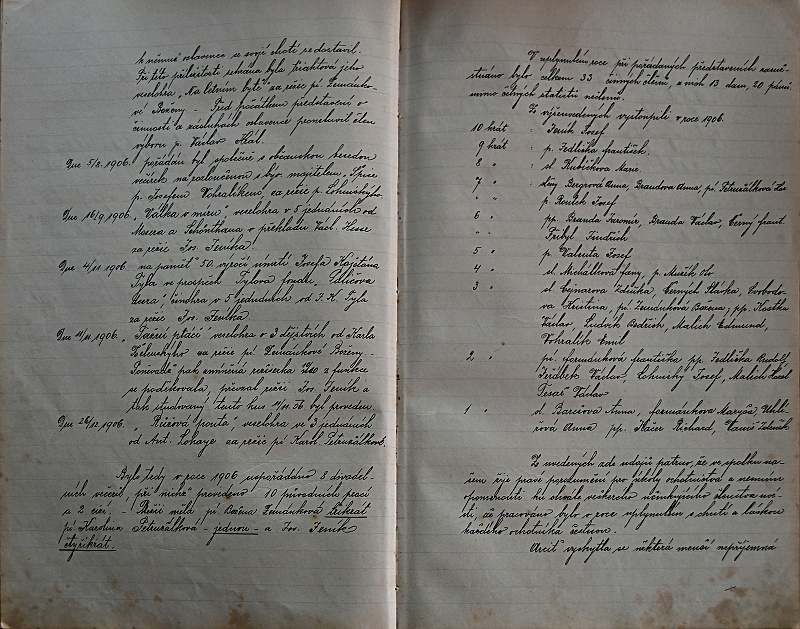 k němuž oslavenec se svojí chotí se dostavil.
Při této příležitosti sehrána byla tříaktová jeho
veselohra „Na letním bytě" za režie pí. Zemánko-
vé Boženy. – Před počátkem představení o
činnosti a zásluhách oslavence promluvil člen
výboru p. Václav Král.
Dne 5/8. 1906. pořádán byl společně s občanskou besedou
věneček na rozloučenou s býv. majitelem
p. Josefem Vohralíkem, za režie p. Lohniského.
Dne 16/9. 1906. „Válka v míru", veselohra v 5 jednáních od
Mosera a Schönthana v překladu Václ. Hesse
za režie Jos. Jeníka.
Dne 4/11 1906. na paměť 50. výročí úmrtí Josefa Kajetána
Tyla ve prospěch Tylova fondu. „Paličova
dcera", činohra v 5 jednáních od J. K. Tyla
za režie Jos. Jeníka
Dne 11/11 1906. „Tažní ptáci" veselohra o 3 dějstvích od Karla
Želenského za režie pí. Zemánkové Boženy. –
Poněvadž pak zmíněná režisérka z funkce
se poděkovala, převzal režii Jos. Jeník a
tak studovaný tento kus 11/11 06 byl proveden.
Dne 26/12. 1906. „Růžová psaní", veselohra ve 3 jednáních
od Ant. Lokaye za režie pí Karol. Petružálkové.
Bylo tedy v roce 1906 uspořádáno 8 divadel-
ních večerů, při nichž provedeno 10 původních prací
a 2 cizí. – Režii měla pí Božena Zemánková třikrát
pí Karolina Petružálková – jednou – a Jos. Jeník
čtyřikrát.
V uplynulém roce při pořádaných představeních zaměst-
náno bylo celkem 33 činných členů, z nich 13 dam, 20 pánů
mimo četných statistů nečlenů.
Z výšeuvedených vystoupili v roce 1906.
10 krát : Jeník Josef
9 krát : p. Jedlička František.
8 " : sl. Kubíčkova Marie.
7 " : slny Bergrová Anna, Brandova Anna, pí. Petružálková Kar.
" " p. Bartek Josef
6 " pp. Branda Jaromír, Branda Václav, Černý Frant.
" " Přibyl Jindřich
5 " p. Valenta Josef
4 " sl. Michálkova Fany, p. Mužík Oto
3 " sl. Cejnarova Zdenka, Černých Slávka, Svobodo-
va Kristina, pí. Zemánková Božena, pp. Kostka
Václav, Ludvík Bedřich, Malich Edmund,
Vohralík Emil
2 " pí. Formánková Františka pp. Jedlička Rudolf,
Jeřábek Václav, Lohniský Josef, Malich Karel
Tesař Václav
1 " sl. Bartošova Anna, Formánkova Maryša, Uhlí-
řová Anna pp. Kačer Richard, Vaniš Zdeněk
Z uvedených zde údajů patrno, že ve spolku na-
šem žije pravé porozumění pro úkoly ochotnictva a nemírno
opomenouti ku chvále veškerého účinkujícího členstva uvé-
sti, že pracováno bylo v roce uplynulém s chutí a láskou
každého ochotníka čestnou.
Arciť vyskytla se některá menší nepříjemná